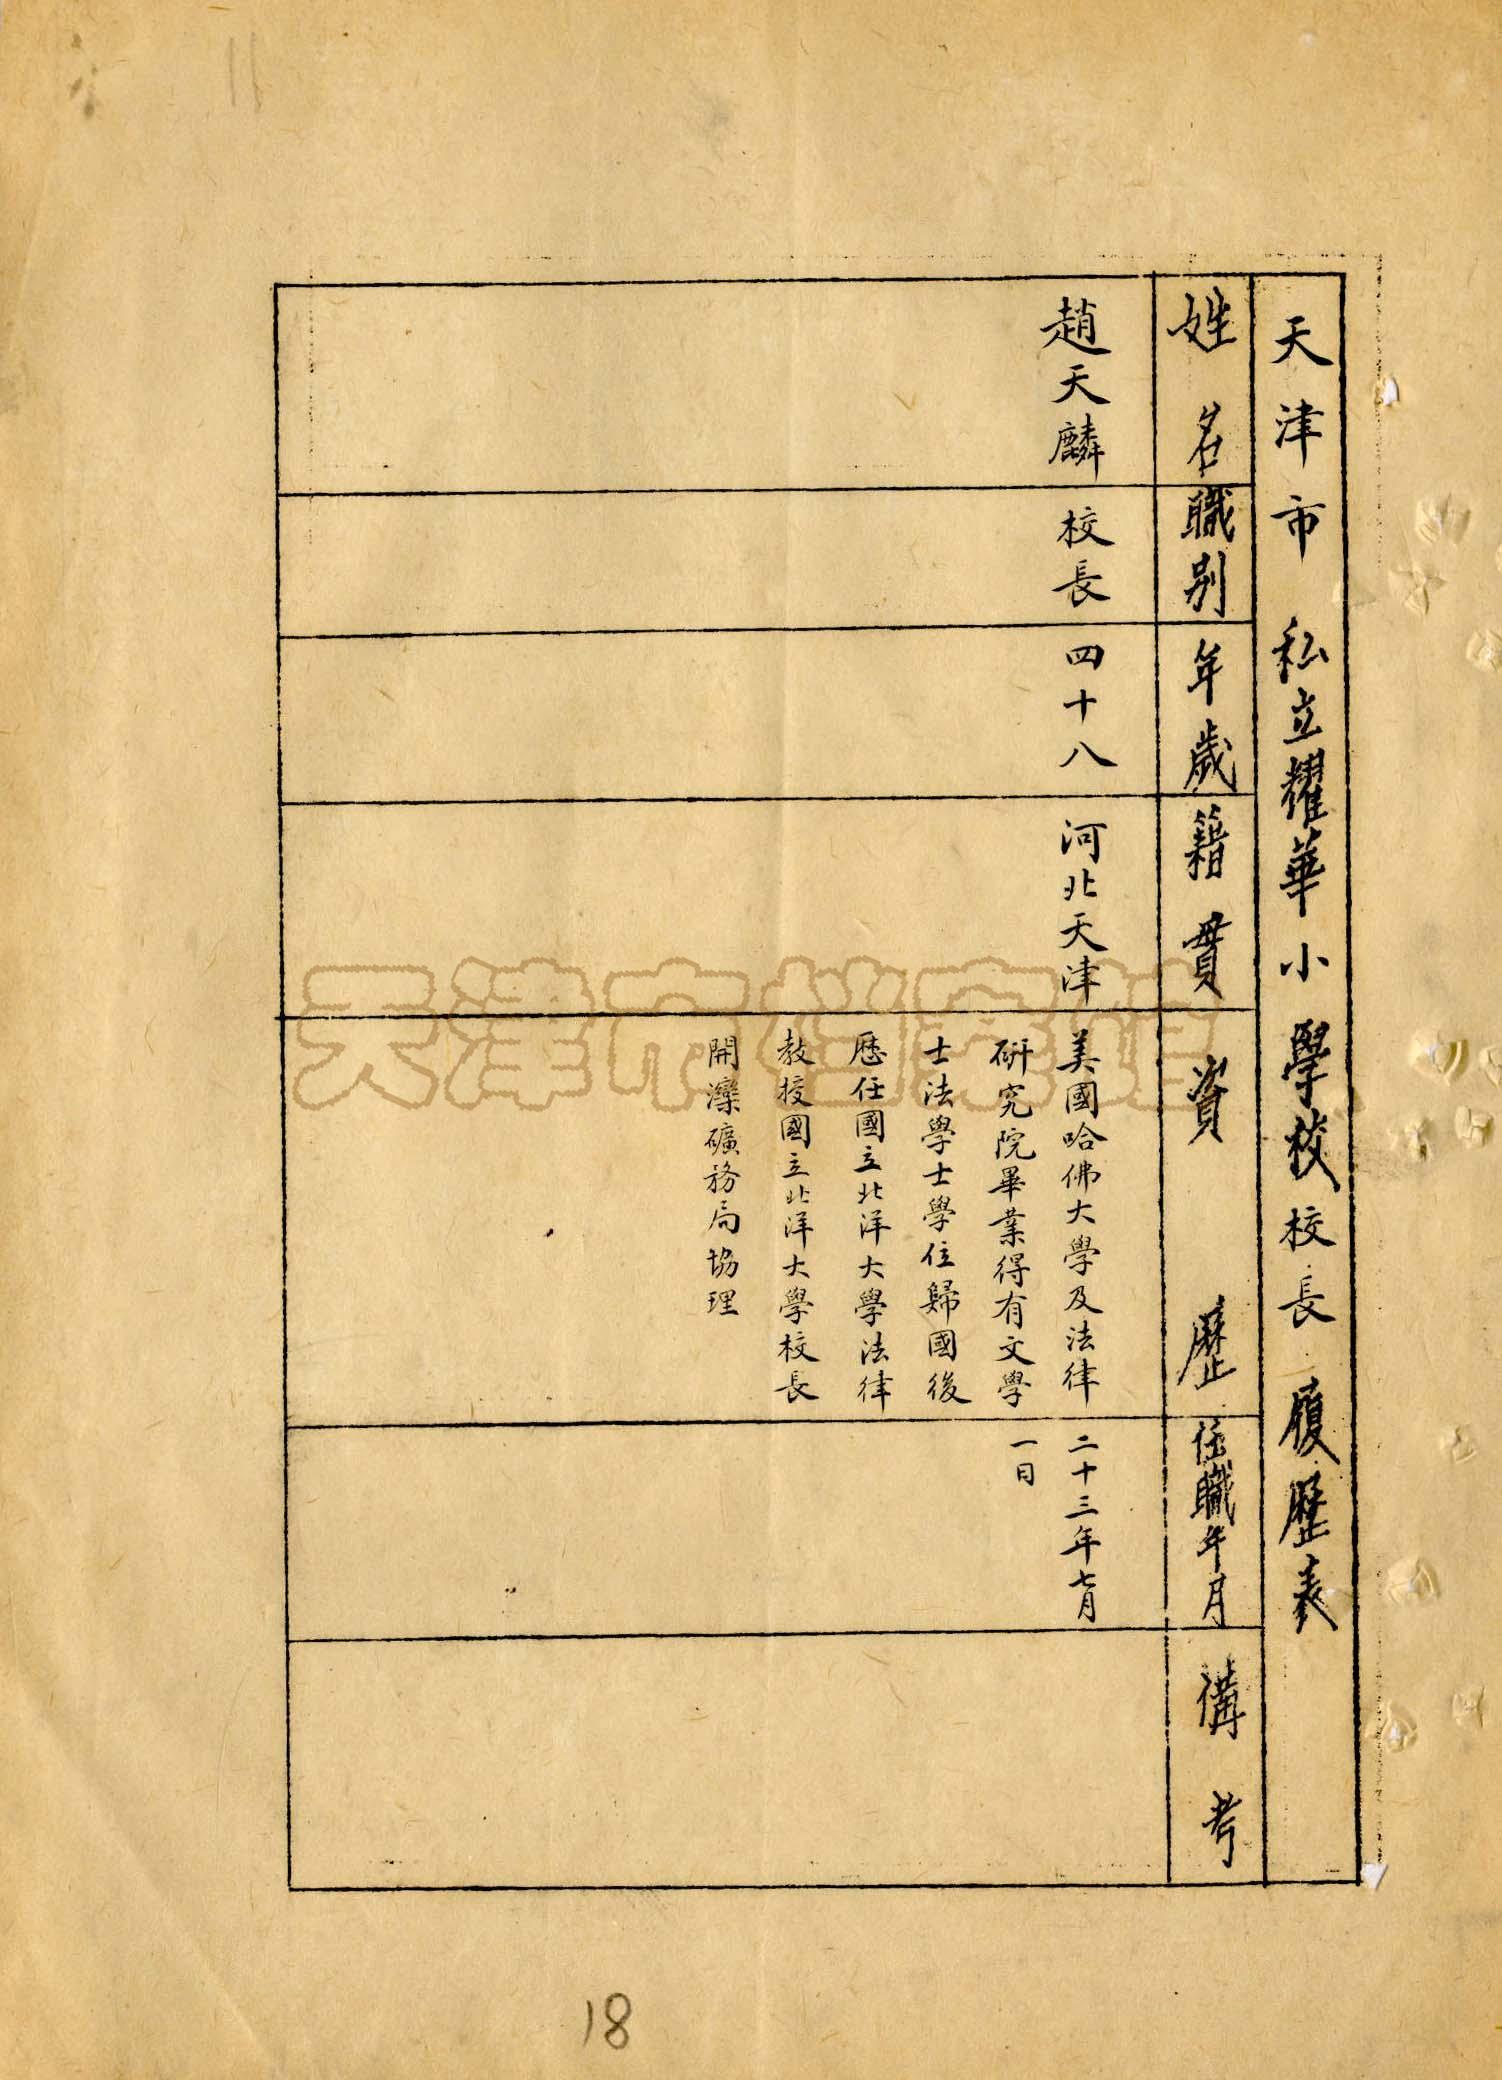 天津市私立耀華小學校校長履歷表
姓名
職別
年歲
籍貫
資歷
任職年月
備考
趙天麟
校長
四十八
河北天津
美國哈佛大學及法律
研究院畢業得有文學
士法學士學位歸國後
歷任國立北洋大學法律
教授國立北洋大學校長
開灤礦務局協理
二十三年七月
一日
天津市档案馆
11
18